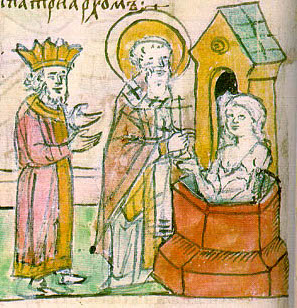 ипатриархомъ: